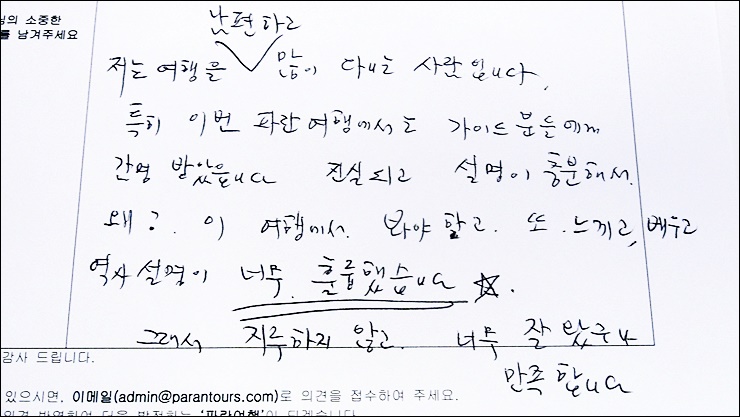 님의 소중한
를 남겨주세요
남편하고
저는 여행을 많이 다니는 사람입니다.
특히 이번 파란여행에서도 가이드분들에게
감명 받았읍니다 진실되고 설명이 충분해서.
왜?. 이 여행에서. 봐야 할고. 또. 느끼고, 배우고
역사 설명이 너무. 훌륭했습니다 ☆.
그래서 지루하지 않고. 너무 잘 왔구나
만족 합니다
감사 드립니다.
있으시면, 이메일(admin@parantours.com)로 의견을 접수하여 주세요.
의견 반영하여 더욱 발전하는 '파란여행'이 되겠습니다.